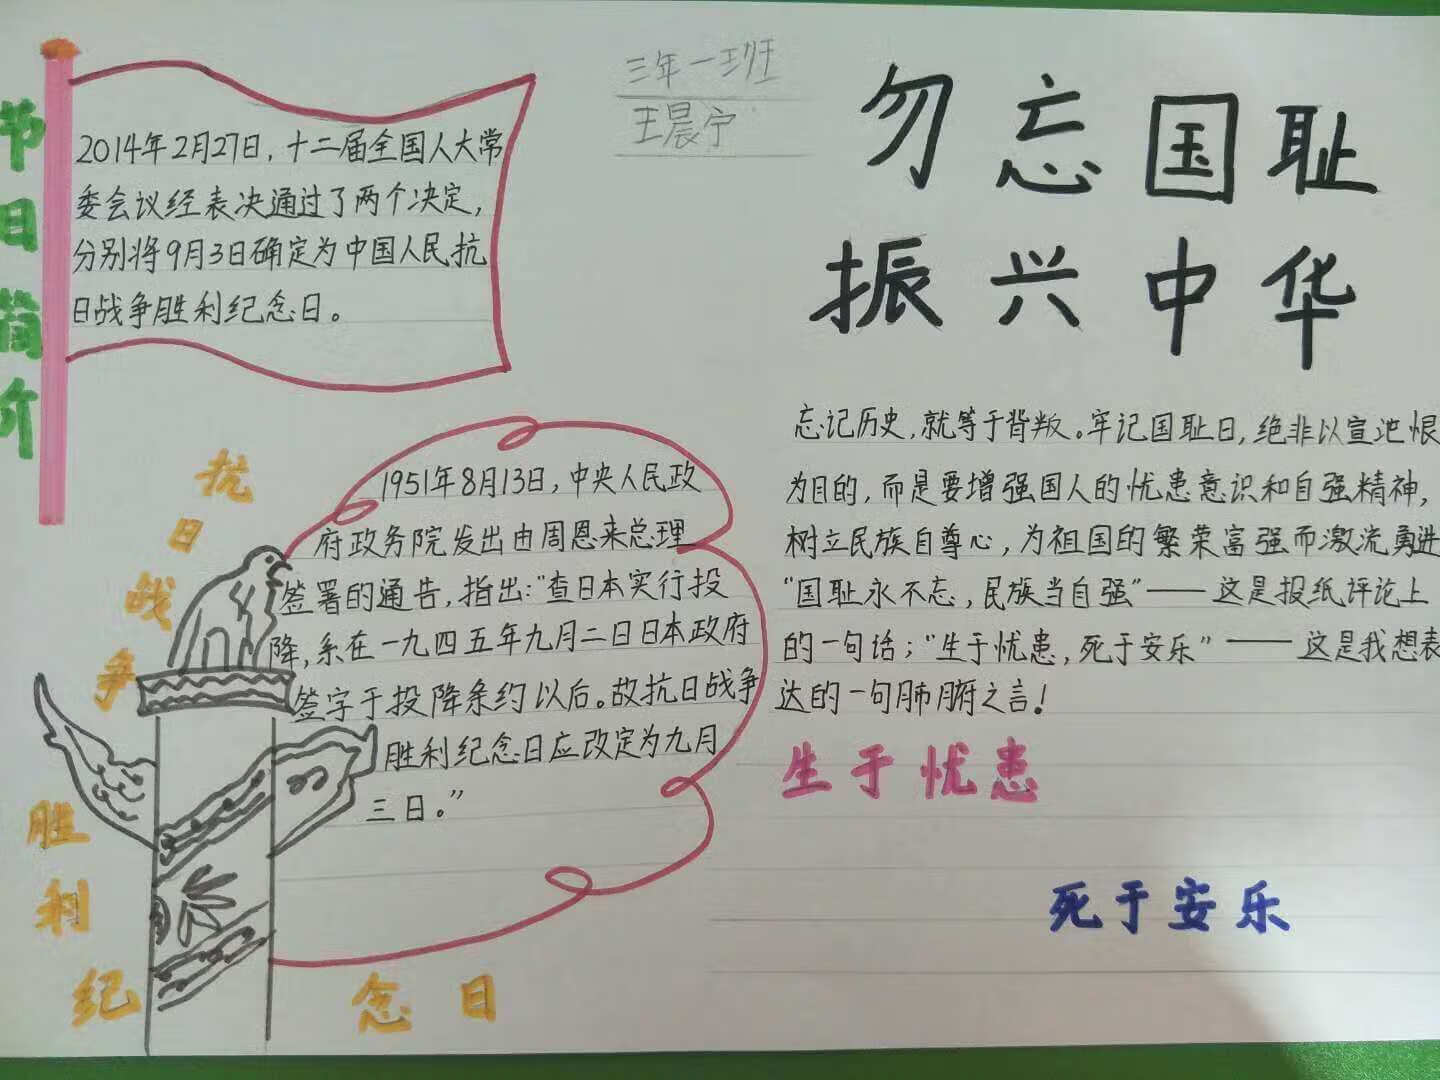 节日简介
2014年2月27日，十二届全国人大常
委会议经表决通过了两个决定，
分别将9月3日确定为中国人民抗
日战争胜利纪念日。
三年一班
王晨宁
勿忘国耻
振兴中华
抗日战争胜利纪念日
1951年8月13日，中央人民政
府政务院发出由周恩来总理
签署的通告，指出：“查日本实行投
降，系在一九四五年九月二日日本政府
签字于投降条约以后。故抗日战争
胜利纪念日应改定为九月
三日。”
忘记历史，就等于背叛。牢记国耻日，绝非以宣泄恨
为目的，而是要增强国人的忧患意识和自强精神，
树立民族自尊心，为祖国的繁荣富强而激流勇进
“国耻永不忘，民族当自强”——这是报纸评论上
的一句话；“生于忧患，死于安乐”——这是我想表
达的一句肺腑之言！
生于忧患
死于安乐